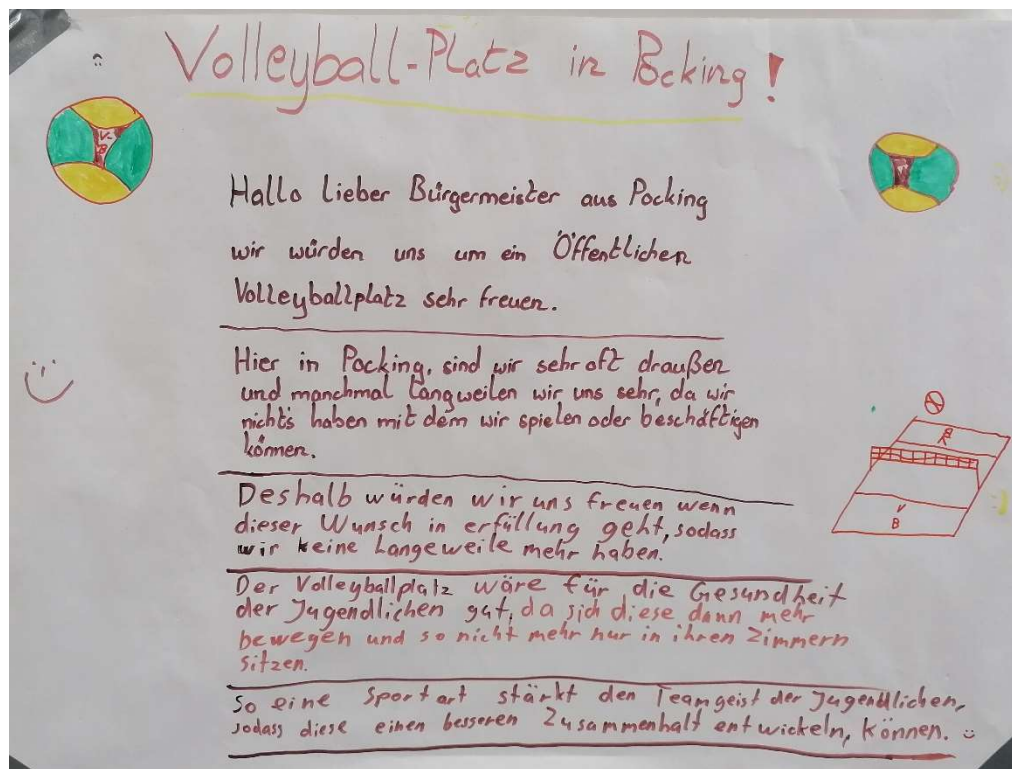 Volleyball-Platz in Pocking!
V-
B
Hallo lieber Bürgermeister aus Pocking
wir würden uns um ein Öffentlichen
Volleyballplatz sehr freuen.
Hier in Pocking, sind wir sehr oft draußen
und manchmal langweilen wir uns sehr, da wir
nichts haben mit dem wir spielen oder beschäftigen
können.
Deshalb würden wir uns freuen wenn
dieser Wunsch in erfüllung geht, sodass
wir keine Langeweile mehr haben.
V
B
Der Volleyballplatz wäre für die Gesundheit
der Jugendlichen gut, da sich diese dann mehr
bewegen und so nicht mehr nur in ihren Zimmern
sitzen.
So eine Sportart stärkt den Teamgeist der Jugendlichen,
sodass diese einen besseren Zusammenhalt entwickeln, können.